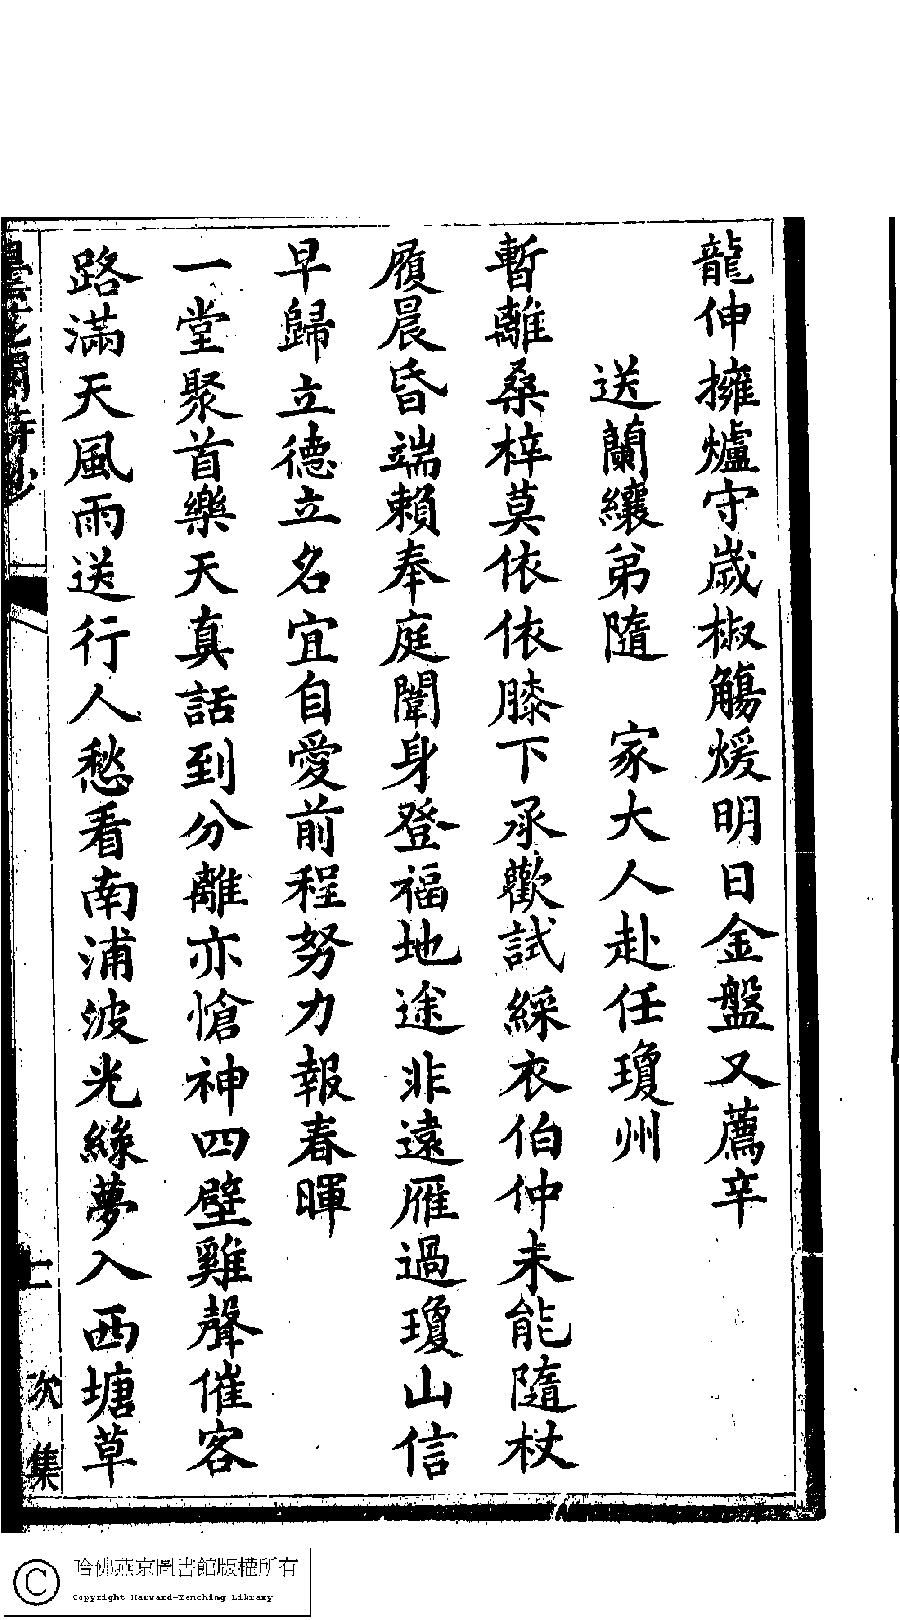 龍伸擁爐守歲椒觴煖明日金盤又薦辛
送蘭纕弟隨　家大人赴任瓊州
暫離桑梓莫依依膝下承歡試綵衣伯仲未能隨杖
履晨昏端賴奉庭闈身登福地途非遠雁過瓊山信
早歸立德立名宜自愛前程努力報春暉
一堂聚首樂天真話到分離亦愴神四壁雞聲催客
路滿天風雨送行人愁看南浦波光綠夢入西塘草
次集
哈佛燕京圖書館版權所有
Copyright Harvard-Yenching Library